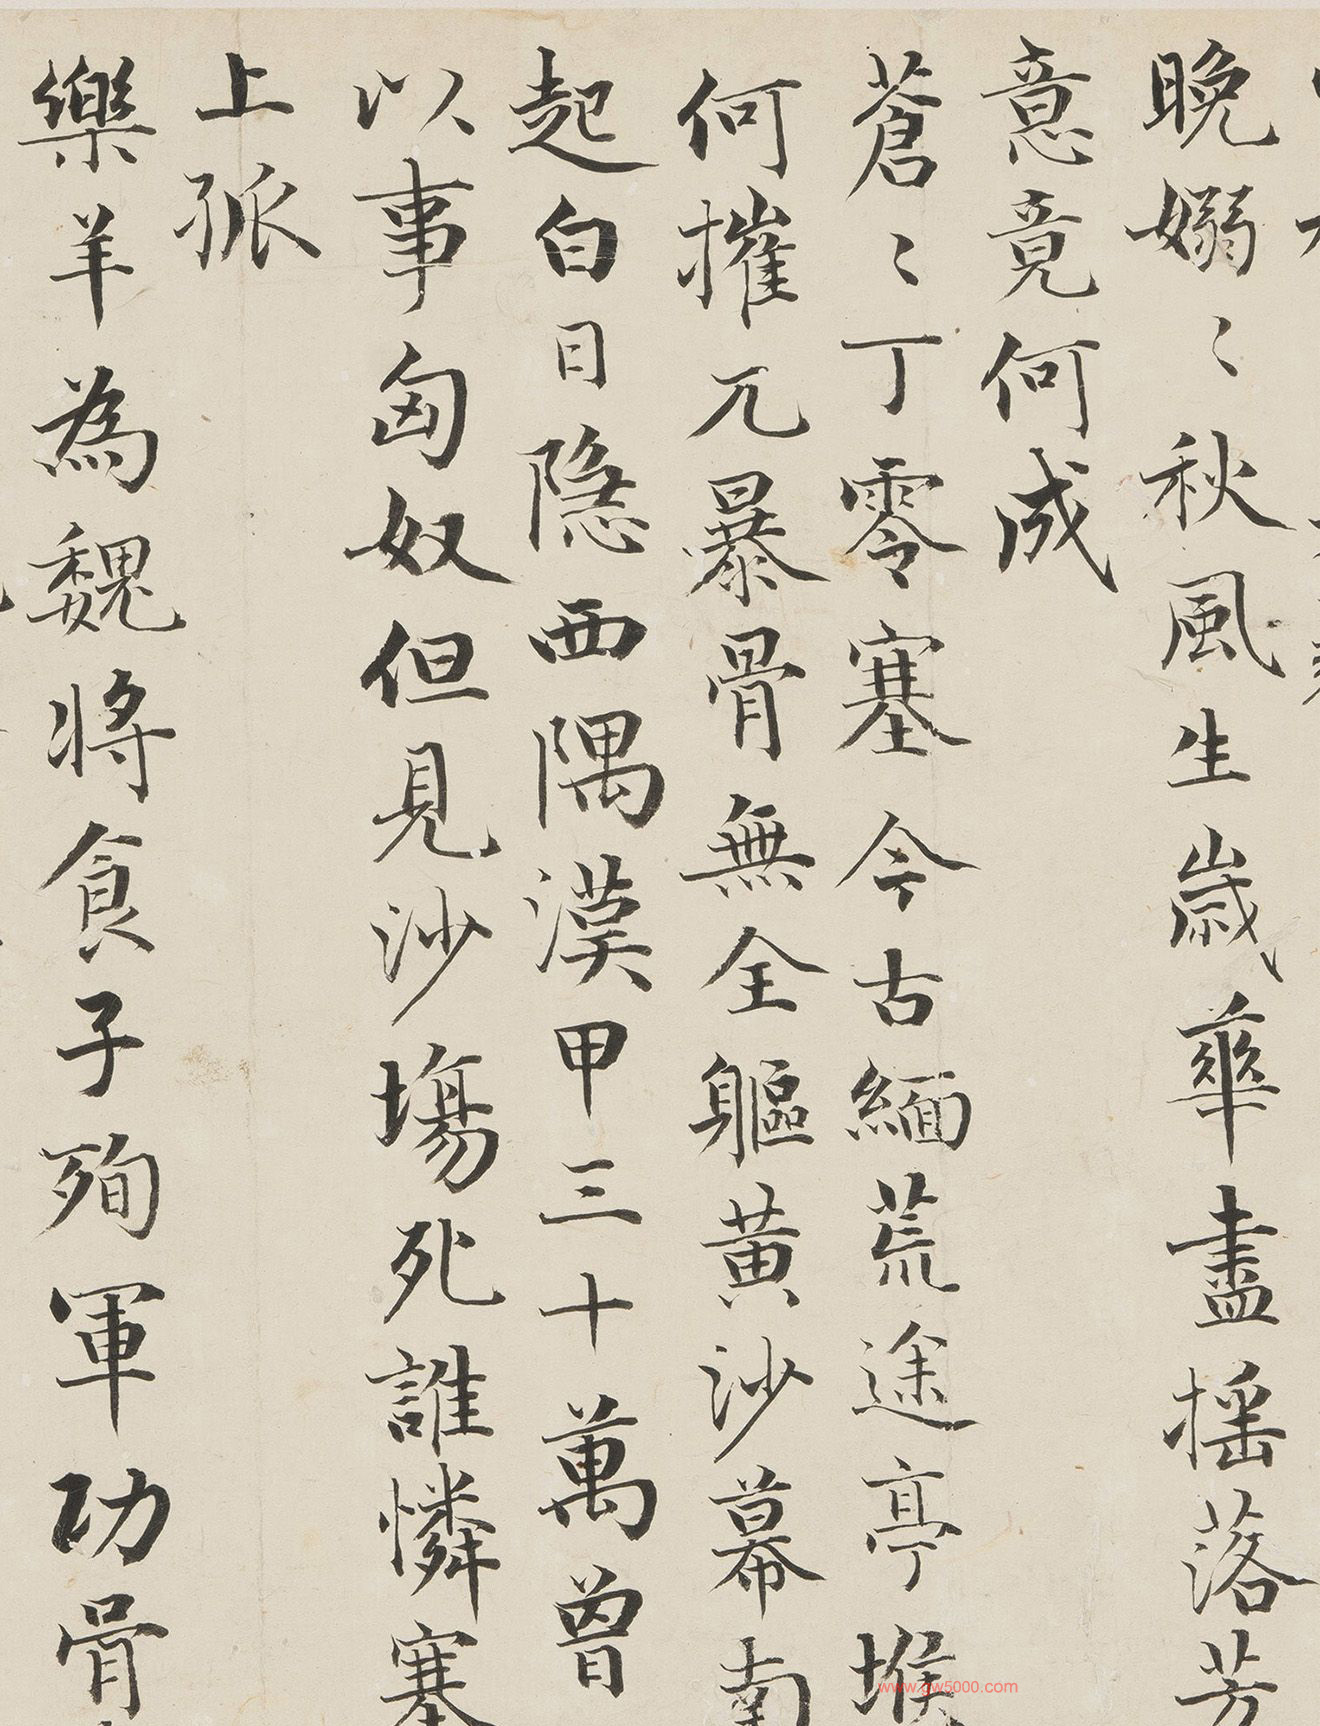 晚嫋〻秋風生歲華盡摇落芳
意竟何成
蒼〻丁零塞今古緬荒途亭堠
何摧兀暴骨無全軀黄沙幕南
起白日隐西隅漢甲三十萬曾
以事匈奴但見沙塲死誰憐塞
上孤
樂羊為魏將食子殉軍功骨
www.gw5000.com